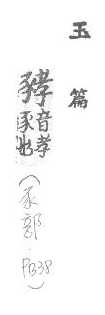 玉篇
豨音孝
豕也
(豕部 P.338)